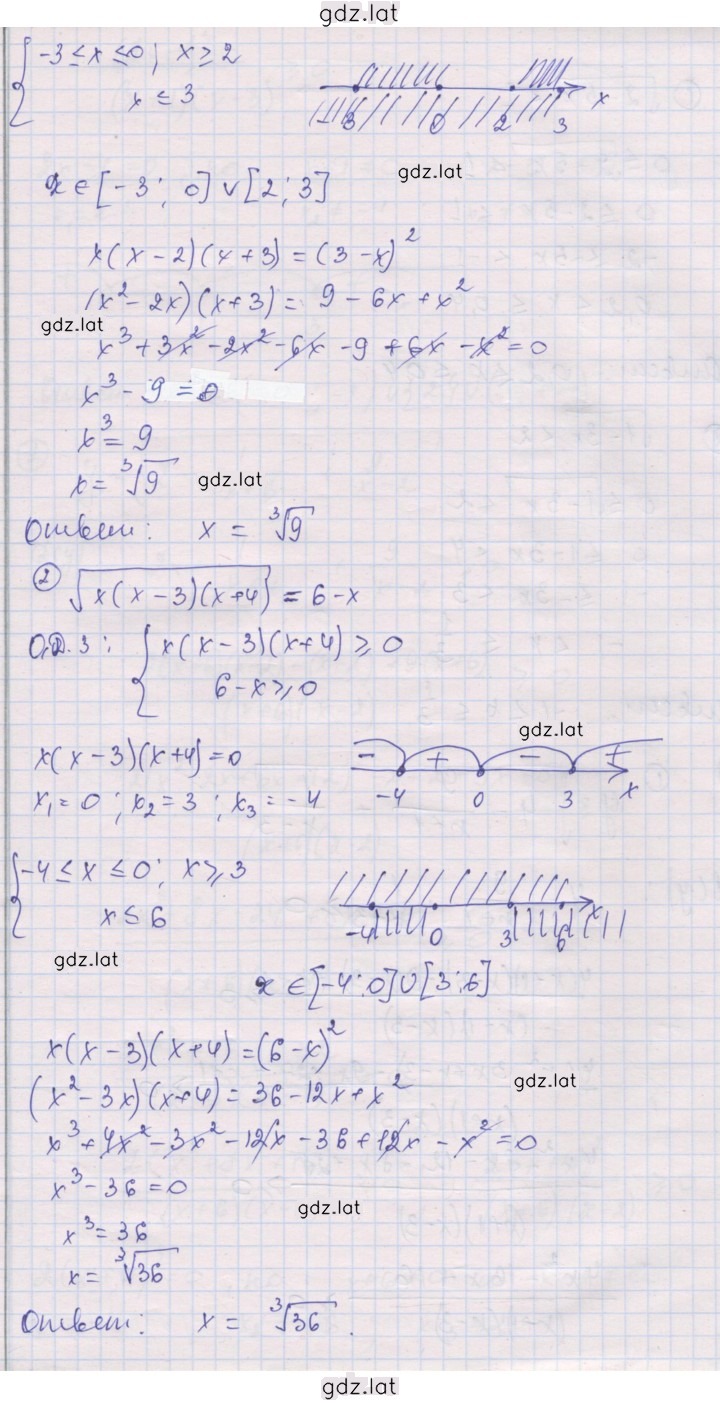 gdz.lat
-3 ≤ x ≤ 0; x ≥ 2
x ≤ 3
-3 0 2 3 x
x ∈ [-3; 0] ∪ [2; 3]
gdz.lat
x(x-2)(x+3) = (3-x)²
(x² - 2x)(x+3) = 9 - 6x + x²
gdz.lat
x³ + 3x² - 2x² - 6x - 9 + 6x - x² = 0
x³ - 9 = 0
x³ = 9
x = ∛9
gdz.lat
Ответ: x = ∛9
② √x(x-3)(x+4) = 6-x
О.Д.З: { x(x-3)(x+4) ≥ 0
6-x ≥ 0
gdz.lat
x(x-3)(x+4) = 0
- + - +
-4 0 3 x
x₁ = 0; x₂ = 3; x₃ = -4
-4 ≤ x ≤ 0; x ≥ 3
x ≤ 6
-4 0 3 6 x
gdz.lat
x ∈ [-4; 0] ∪ [3; 6]
x(x-3)(x+4) = (6-x)²
gdz.lat
(x² - 3x)(x+4) = 36 - 12x + x²
x³ + 4x² - 3x² - 12x - 36 + 12x - x² = 0
x³ - 36 = 0
gdz.lat
x³ = 36
x = ∛36
Ответ: x = ∛36.
gdz.lat